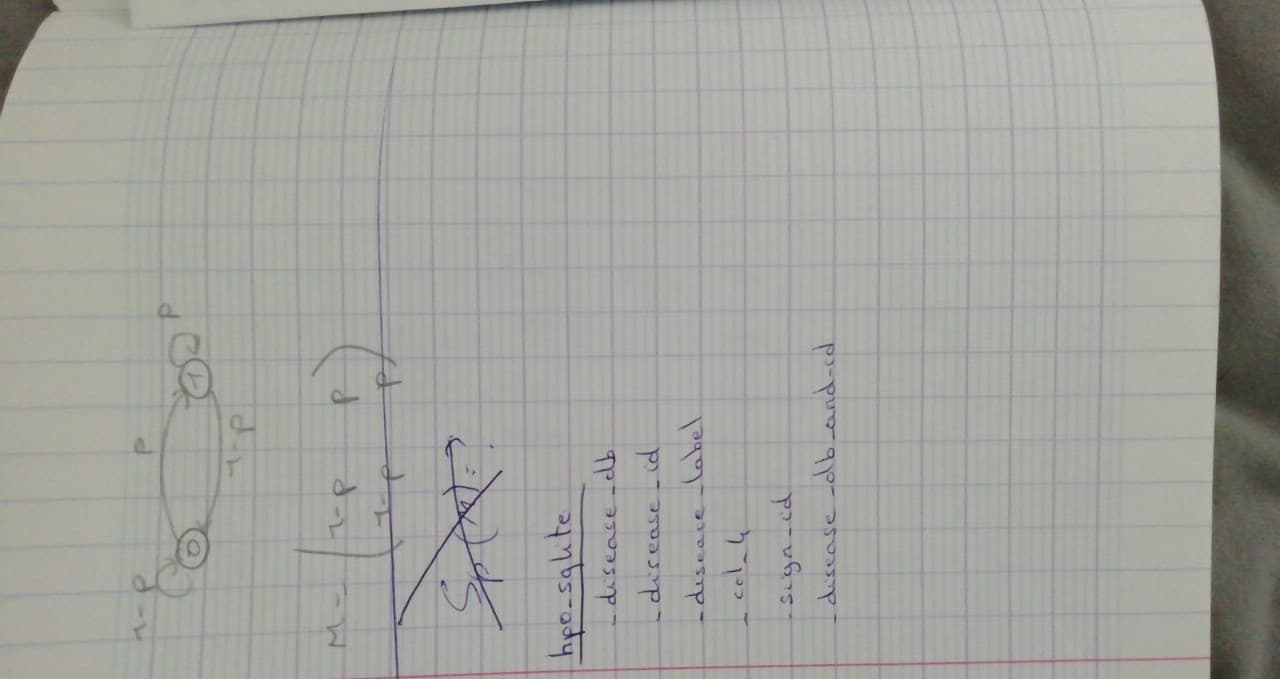 1-p
p
p
0
1
1-p
M = ( 1-p p )
( 1-p p )
Sp(M) = ?
hpo_sqlite
- disease_db
- disease_id
- disease_label
- col_4
- sign_id
- disease_db_and_id